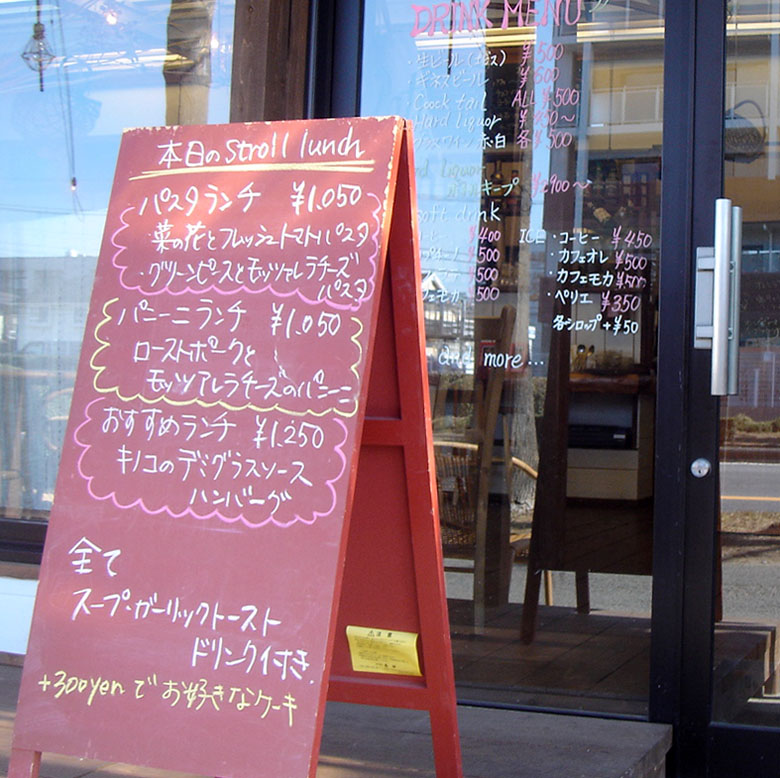 本日のStroll lunch
パスタランチ ¥1.050
・菜の花とフレッシュトマトパスタ
・グリーンピースとモッツァレラチーズ
パスタ
パニーニランチ ¥1.050
ローストポークと
モッツァレラチーズのパニーニ
おすすめランチ ¥1.250
キノコのデミグラスソース
ハンバーグ
全て
スープ・ガーリックトースト
ドリンク付き
+300yenでお好きなケーキ
DRINK MENU
・生ビール ¥500
・ギネスビール
・Coock tail ALL ¥500
・Hard liquor
赤・白 各¥500
キープ
soft drink
¥400
¥500
500
フェモカ 500
ICE・コーヒー ¥450
・カフェオレ ¥500
・カフェモカ ¥500
・ペリエ ¥350
各シロップ+¥50
and more...